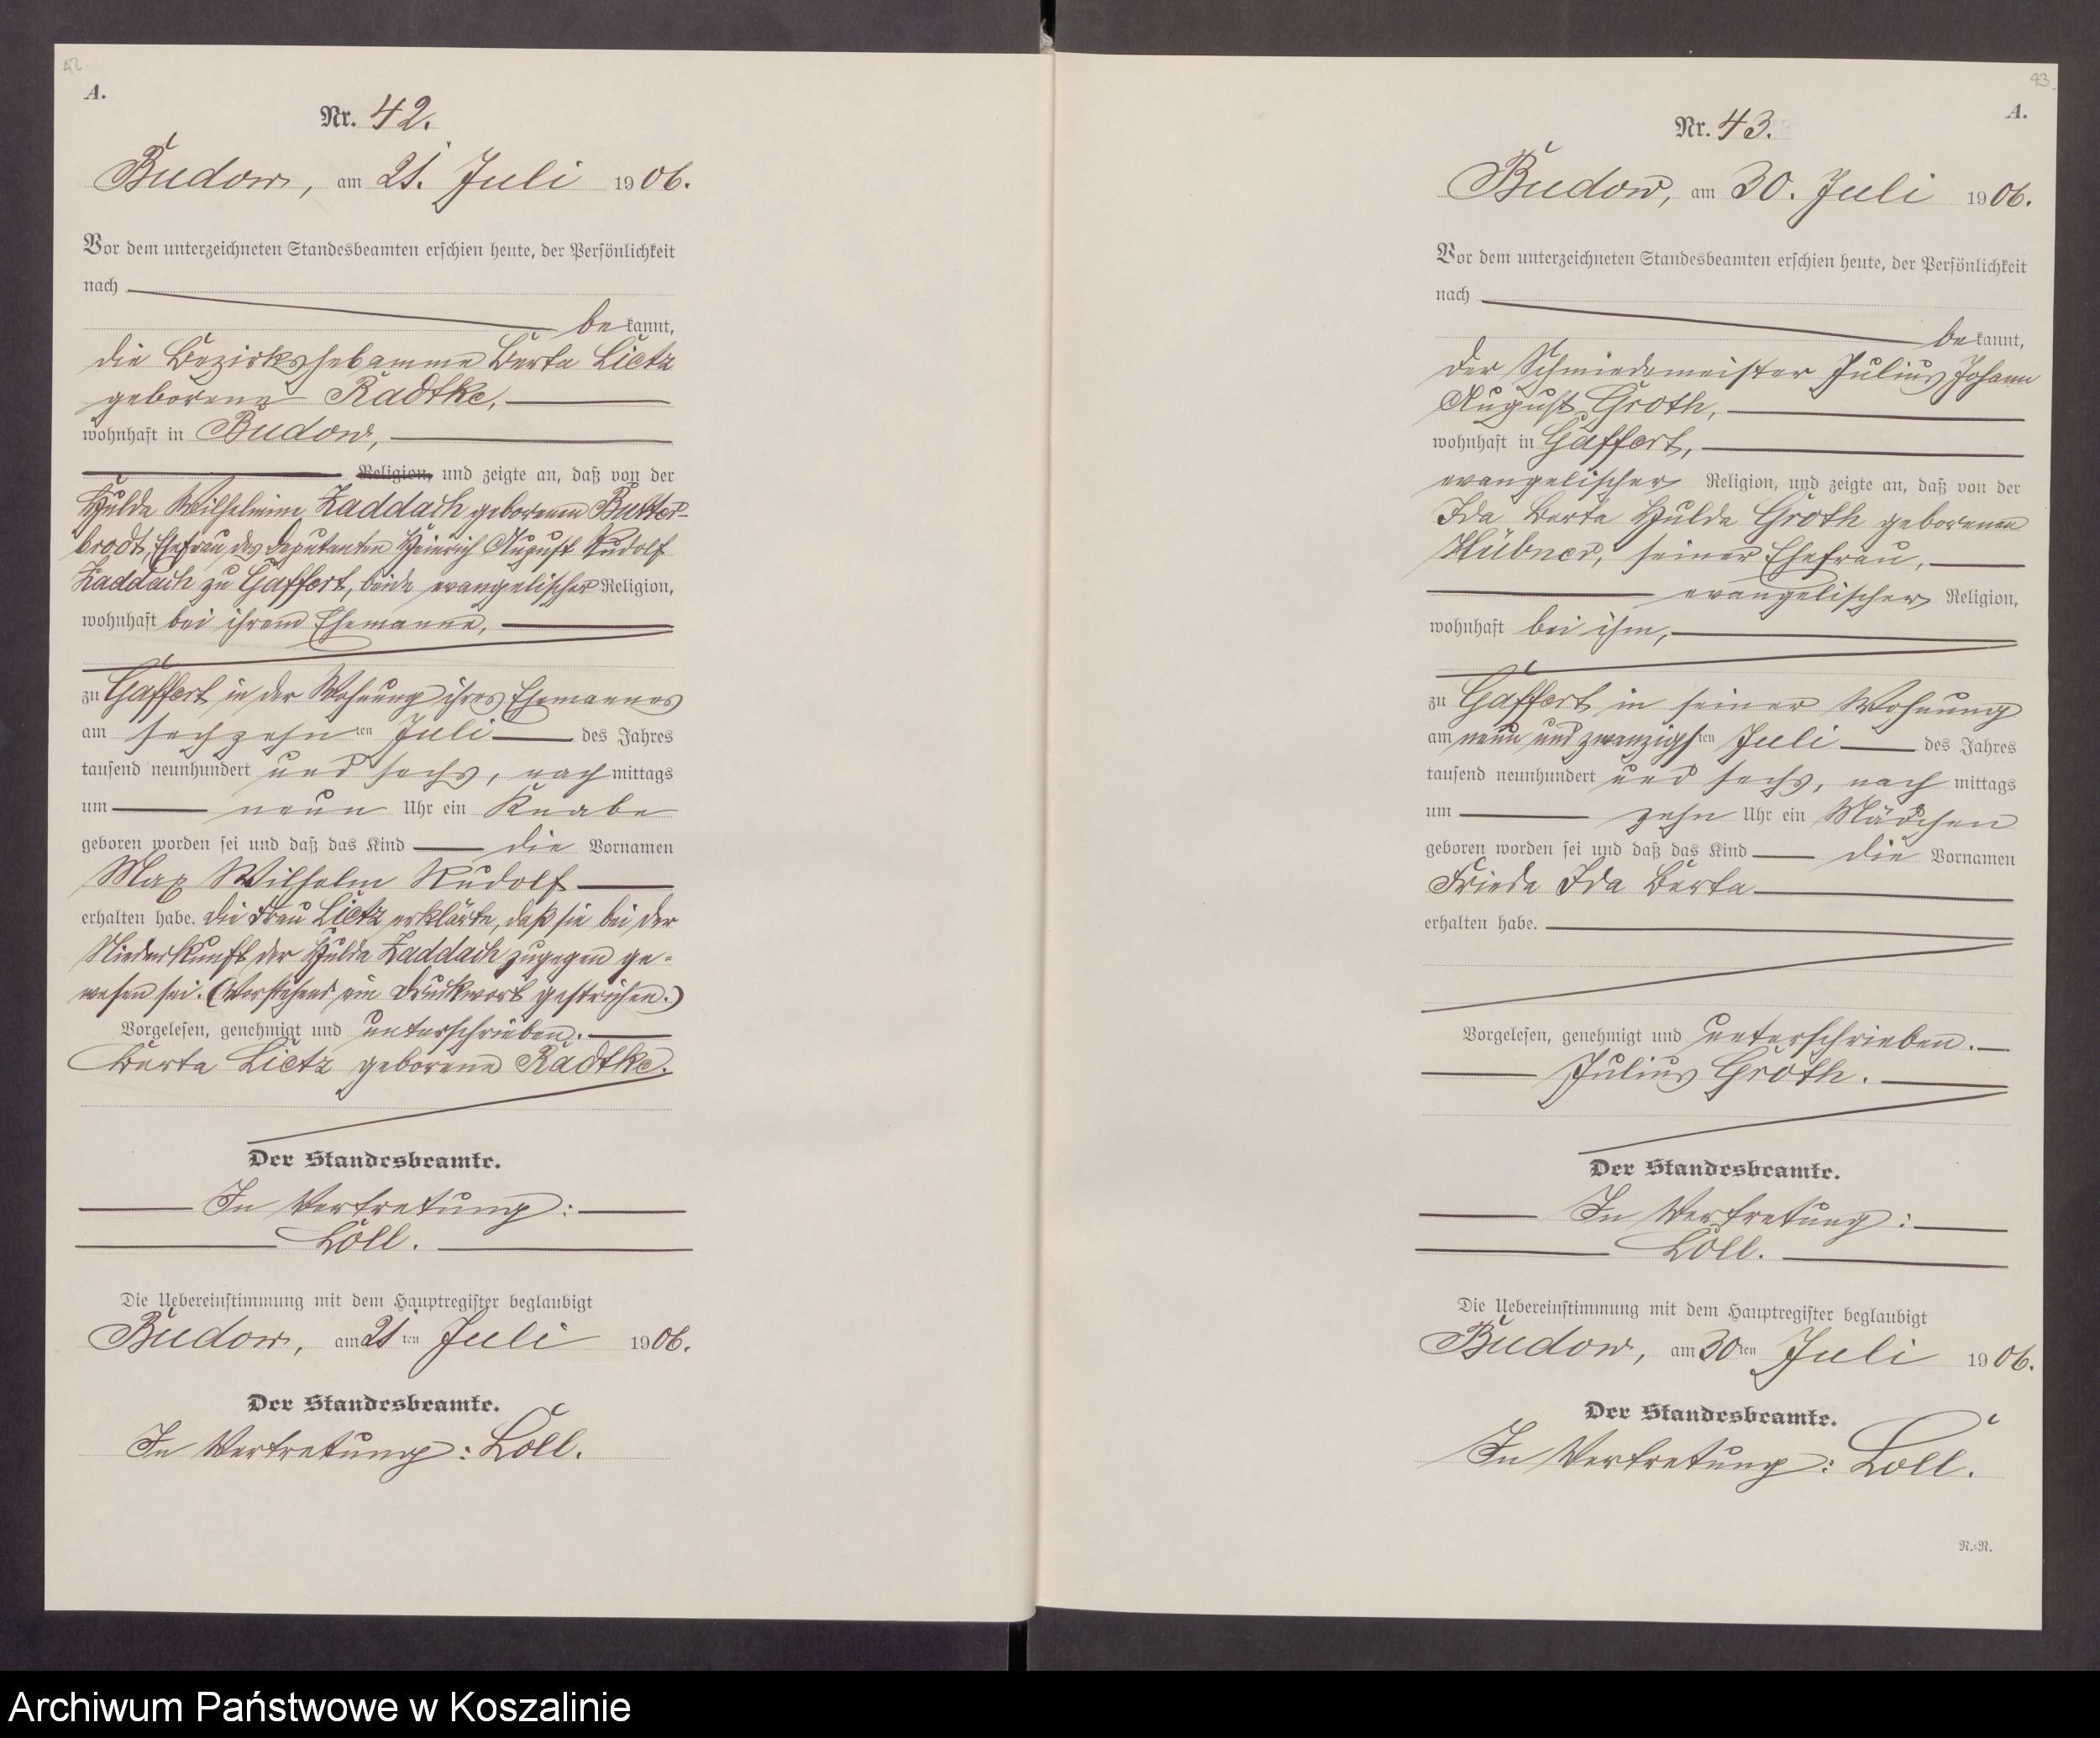 42
A.
Nr. 42.
Budow, am 21. Juli 1906.
Vor dem unterzeichneten Standesbeamten erschien heute, der Persönlichkeit
nach
bekannt,
die Bezirkshebamme Berta Lietz
geborene Radtke,
wohnhaft in Budow,
Religion, und zeigte an, daß von der
Hulda Wilhelmine Zaddach geborenen Butter-
brodt, Ehefrau des Deputanten Heinrich August Rudolf
Zaddach zu Gaffert, beide evangelischer Religion,
wohnhaft bei ihrem Ehemanne,
zu Gaffert in der Wohnung ihres Ehemannes
am sechzehnten Juli des Jahres
tausend neunhundert und sechs, nachmittags
um neun Uhr ein Knabe
geboren worden sei und daß das Kind die Vornamen
Max Wilhelm Rudolf
erhalten habe. Die Frau Lietz erklärte, daß sie bei der
Niederkunft der Hulda Zaddach zugegen ge-
wesen sei. (Vorstehend ein Druckwort gestrichen.)
Vorgelesen, genehmigt und unterschrieben.
Berta Lietz geborene Radtke.
Der Standesbeamte.
In Vertretung:
Löll.
Die Uebereinstimmung mit dem Hauptregister beglaubigt
Budow, am 21ten Juli 1906.
Der Standesbeamte.
In Vertretung: Löll.
43
A.
Nr. 43.
Budow, am 30. Juli 1906.
Vor dem unterzeichneten Standesbeamten erschien heute, der Persönlichkeit
nach
bekannt,
der Schmiedemeister Julius Johann
August Groth,
wohnhaft in Gaffert,
evangelischer Religion, und zeigte an, daß von der
Ida Berta Hulda Groth geborenen
Hübner, seiner Ehefrau,
evangelischer Religion,
wohnhaft bei ihm,
zu Gaffert in seiner Wohnung
am neun und zwanzigsten Juli des Jahres
tausend neunhundert und sechs, nach mittags
um zehn Uhr ein Mädchen
geboren worden sei und daß das Kind die Vornamen
Frieda Ida Berta
erhalten habe.
Vorgelesen, genehmigt und unterschrieben.
Julius Groth.
Der Standesbeamte.
In Vertretung:
Löll.
Die Uebereinstimmung mit dem Hauptregister beglaubigt
Budow, am 30ten Juli 1906.
Der Standesbeamte.
In Vertretung: Löll.
R.=R.
Archiwum Państwowe w Koszalinie